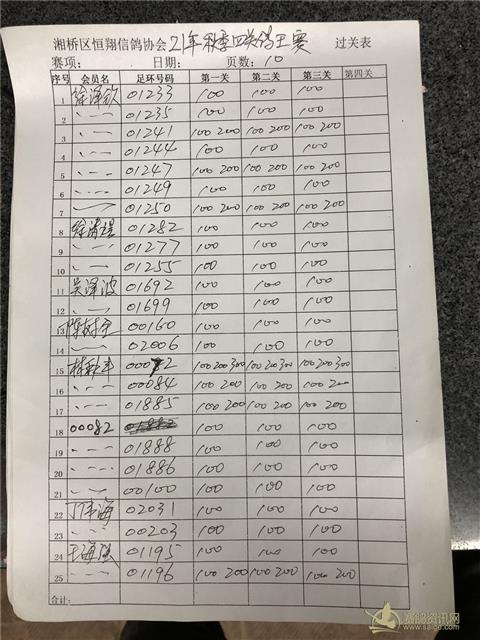 湘桥区恒翔信鸽协会21年秋季四关鸽王赛 过关表
赛项: 日期: 页数: 10
序号 会员名 足环号码 第一关 第二关 第三关 第四关
1 徐泽钦 01233 100 100 100
2 01235 100 100 100
3 01241 100 200 100 200 100 200
4 01244 100 100 100
5 01247 100 200 100 200 100 200
6 01249 100 100 100
7 01250 100 200 100 200 100 200
8 01282 100 100 100
9 01277 100 100 100
10 01255 100 100 100
11 吴泽波 01692 100 100 100
12 01699 100 100 100
13 00160 100 100 100
14 02006 100 100 100
15 100 200 300 100 200 300 100 200 300
16 00084 100 200 100 200 100 200
17 01885 100 200 100 200 100 200
18 00082 100 100 100
19 01888 100 100 100
20 01886 100 100 100
21 00100 100 100 100
22 丁伟海 02031 100 100 100
23 00203 100 100 100
24 01195 100 100 100
25 01196 100 200 100 200 100 200
合计:
赛鸽资讯网
www.saige.com